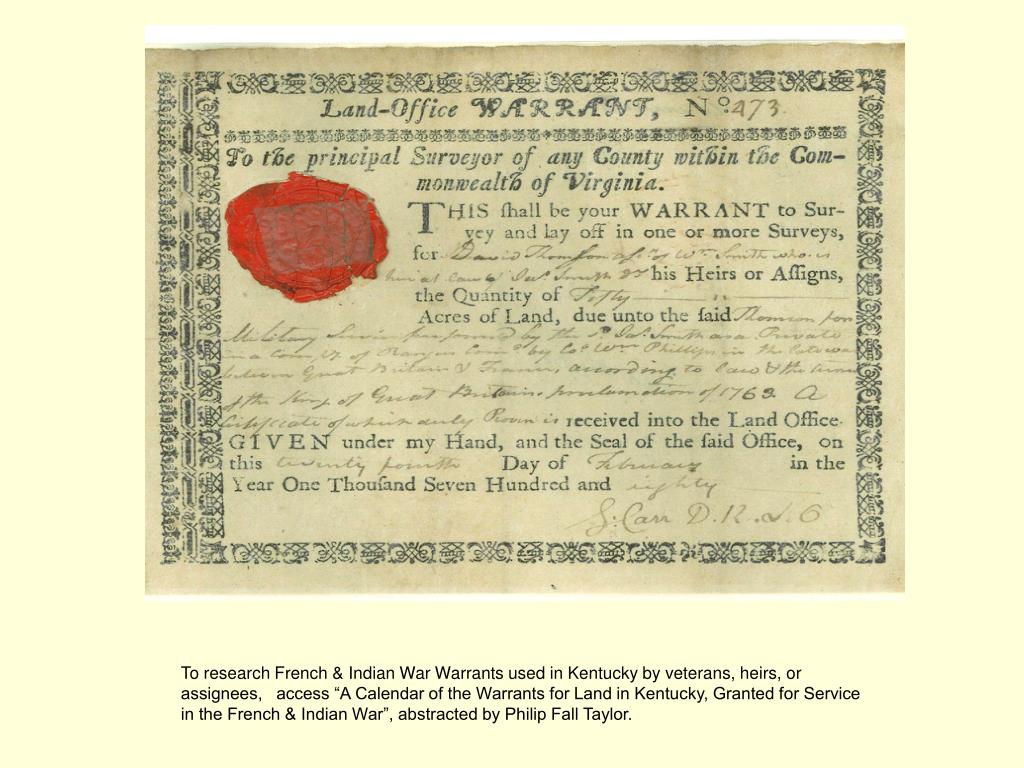 Land-Office WARRANT, No. 473
To the principal Surveyor of any County within the Com-
monwealth of Virginia.
THIS ſhall be your WARRANT to Sur-
vey and lay off in one or more Surveys,
for David Thomſon aſsee of Wm. Smith who is
heir at Law of Jas. Smith decd his Heirs or Aſſigns,
the Quantity of Fifty
Acres of Land, due unto the ſaid Thomson for
Military Service performed by the sd. Jas. Smith as a Private
in a Compy. of Rangers Comd. by Col. Wm. Phillips in the late war
between Great Britain & France, according to
of the King of Great Britain's proclamation of 1763. A
Certificate of which duly Proven is received into the Land Office.
GIVEN under my Hand, and the Seal of the ſaid Office, on
this twenty fourth Day of February in the
Year One Thouſand Seven Hundred and eighty
S: Carr D. R. L. O
To research French & Indian War Warrants used in Kentucky by veterans, heirs, or
assignees, access “A Calendar of the Warrants for Land in Kentucky, Granted for Service
in the French & Indian War”, abstracted by Philip Fall Taylor.